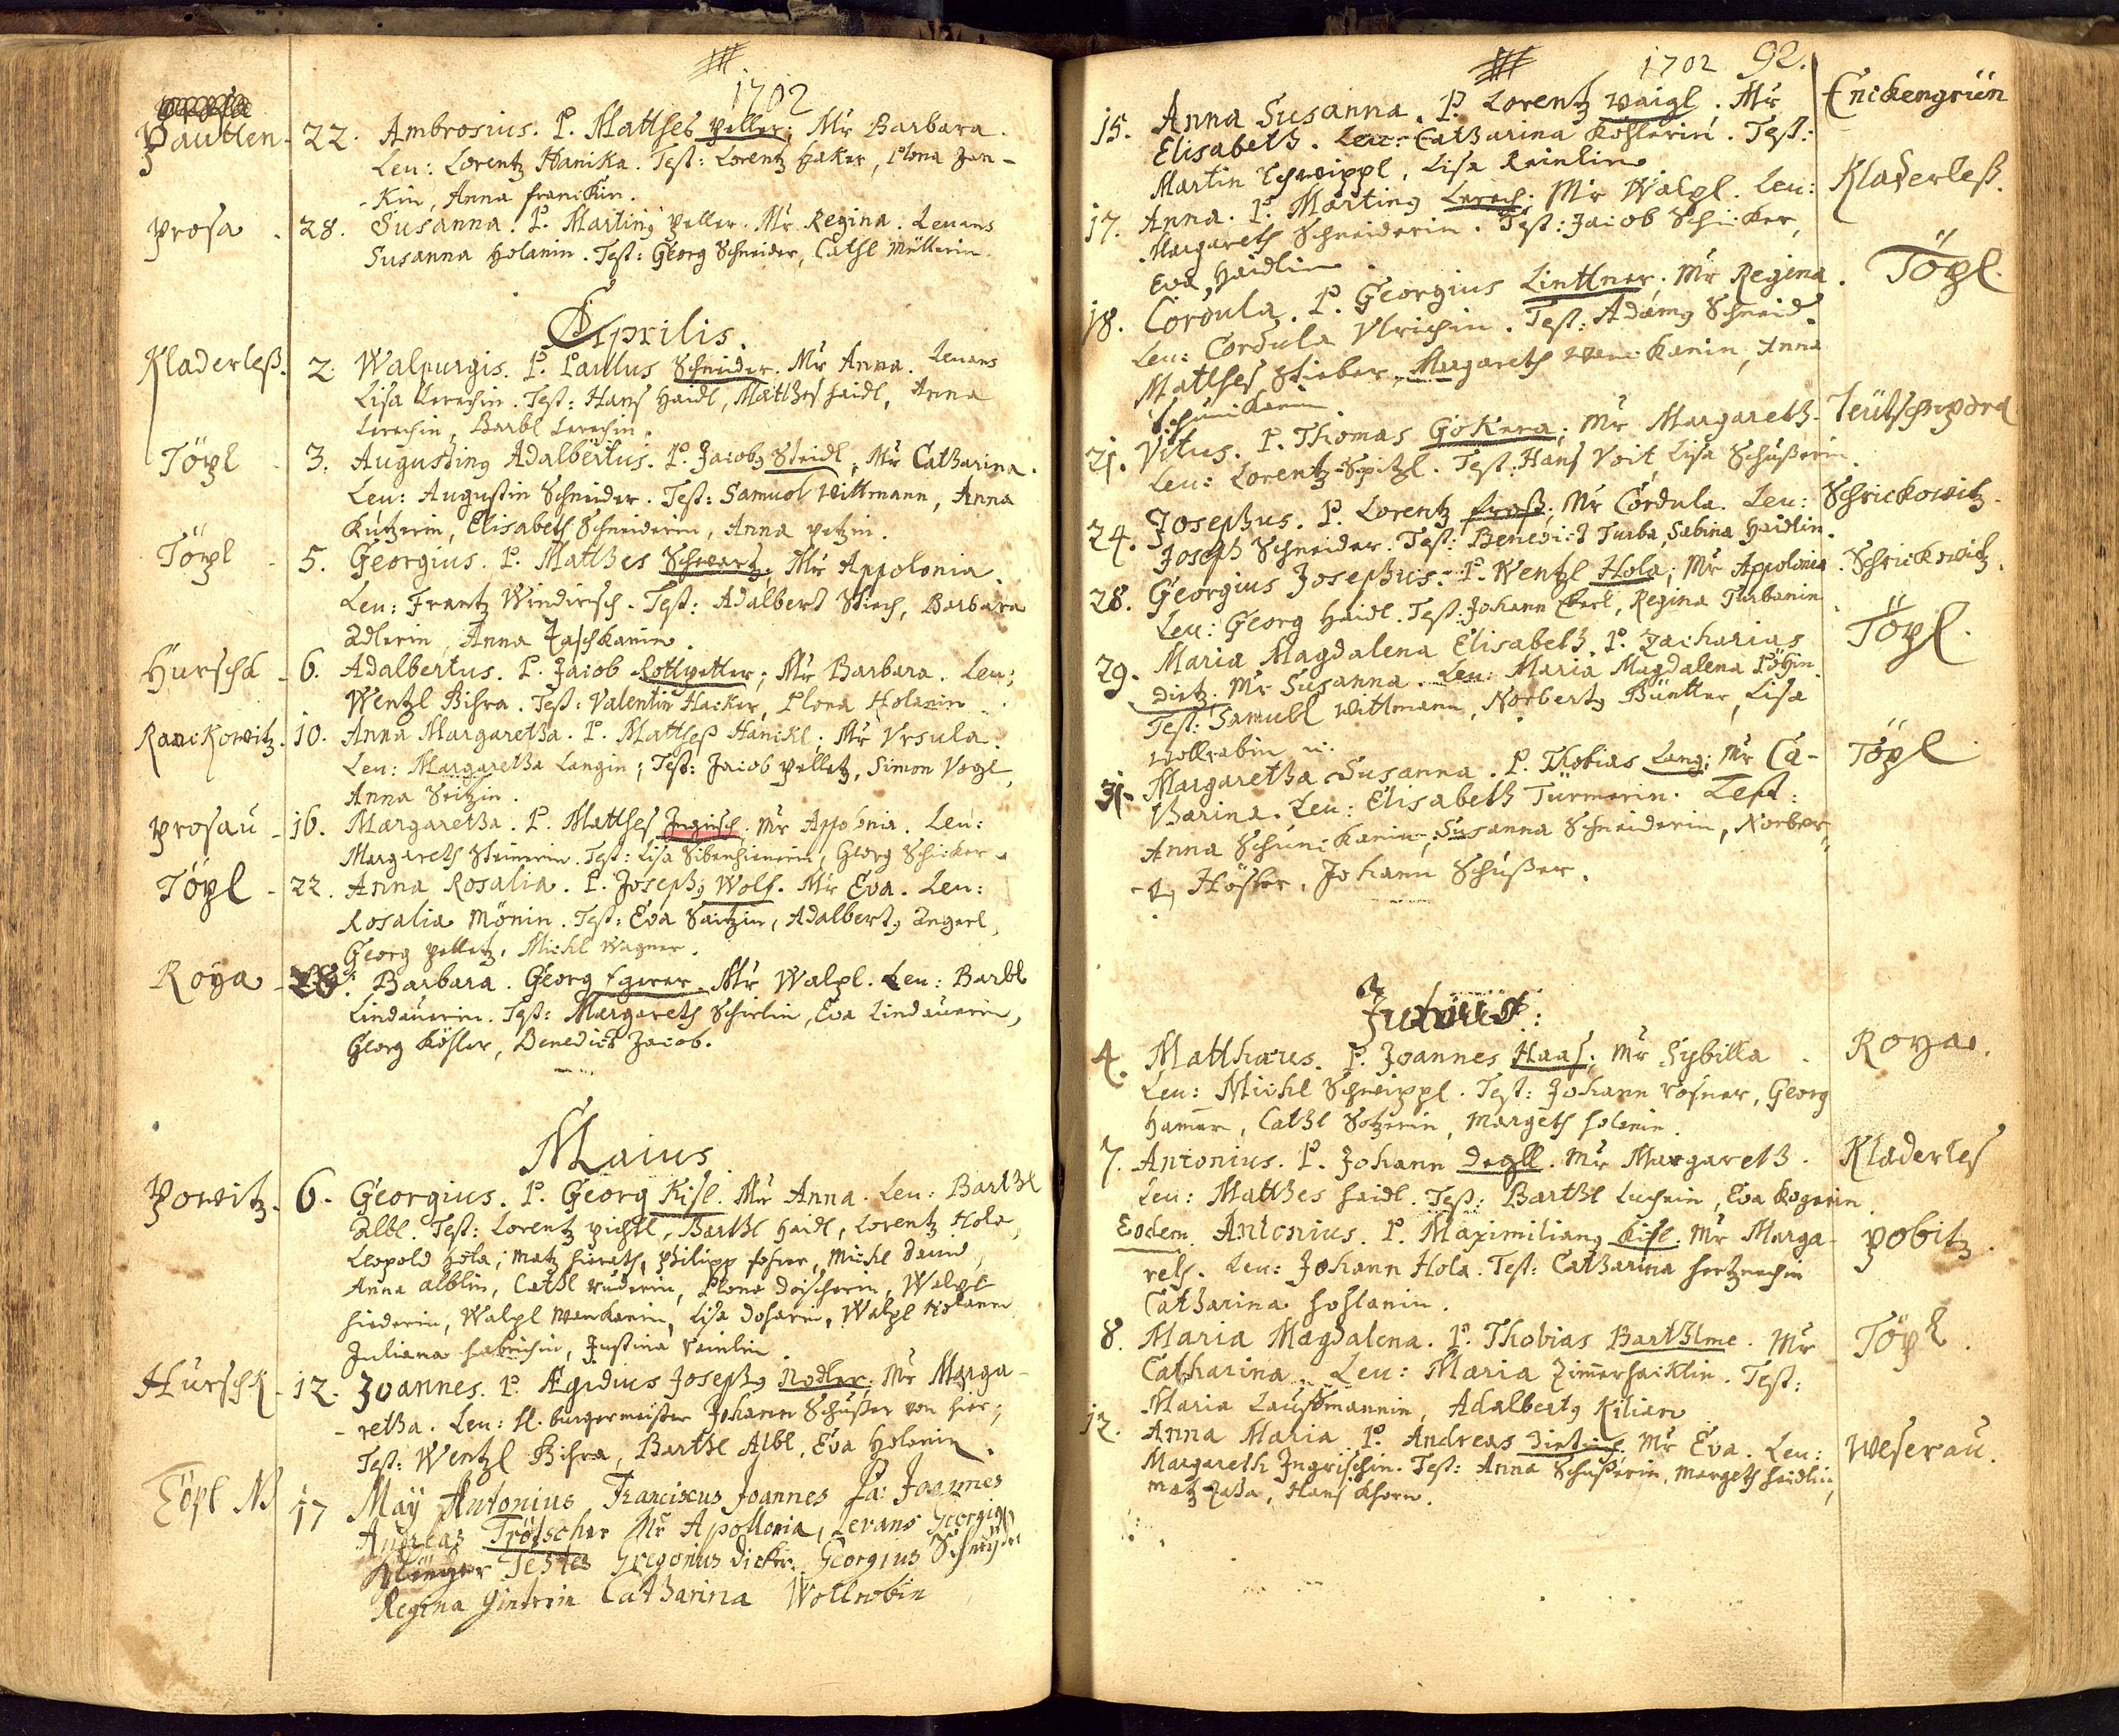 1702
Pautten. 22. Ambrosius. P. Matthes peller; Mr Barbara.
Leu: Lorentz Hanika. Test: Lorentz Haker, Plona Jan-
-Kin, Anna franckin.
Prosa. 28. Susanna. P. Marting peller. Mr Regina. Leuans
Susanna Holanin. Test: Georg Schneider, Cathl Müllerin.
Aprilis.
Kladerleß. 2. Walpurgis. P. Paulus Schneider. Mr Anna. Leuans
Lisa Lerechin. Test: Hans Haidl, Matthes Haidl, Anna
Lerechin, Barbl Lerechin.
Töpl - 3. Augusting Adalbertus. P. Jacobg Steidl, Mr Catharina.
Leu: Augustin Schneider. Test: Samuel Wittmann, Anna
Kutzerin, Elisabeth Schneiderin, Anna petzin.
Töpl - 5. Georgius. P. Matthes Schwartz; Mr Appolonia.
Leu: Frantz Windirisch. Test: Adalbert Stich, Barbara
Adlerin, Anna Zaschkanin.
Hurschk - 6. Adalbertus. P. Jacob Rottpetter; Mr Barbara. Leu:
Wentzl Bihra. Test: Valentin Hacker, Plona Holanin
Rankowitz. 10. Anna Margaretha. P. Matthes Hanikl; Mr Vrsula.
Leu: Margaretha Langin; Test: Jacob pelletz, Simon Vogl,
Anna Seitzin.
prosau - 16. Margaretha. P. Matthes Ingrisch. Mr Appolonia. Leu:
Margareth Steinerin. Test: Lisa Sibenhienerin, Georg Schicker
Töpl - 22. Anna Rosalia. P. Josephg Wolf. Mr Eva. Leu:
Rosalia Mönin. Test: Eva Saitzin, Adalbertg Angerl,
Georg pelletz, Michl Wagner.
Roya - 28. Barbara. Georg Egerer. Mr Walpl. Leu: Barbl
Lindauerin. Test: Margareth Schirlin, Eva Lindauerin,
Georg Köhler, Benedict Jacob.
Maius
Powitz. 6. Georgius. P. Georg Kisl. Mr Anna. Leu: Barthl
Albl. Test: Lorentz pichtl, Barthl Haidl, Lorentz Hola
Leopold Hola, Matz hierath, Philipp foher, Michl David,
Anna Alblin, Cathl ruderin, Plona Doischerin, Walpl
hiederin, Walpl Wenckanin, Lisa Dosarin, Walpl Holanin
Juliana Habrichin, Justina Reinlin
Hurschk - 12. Joannes. P. Ægidius Josephg Nodler; Mr Marga-
-retha. Leu: H. burgermeister Johann Schußer von hier;
Test: Wentzl Bihra, Barthl Albl, Eva Holanin.
Töpl 17 Maÿ Antonius Franciscus Joannes Pa: Joannes
Andreas Trötscher Mr Apollonia, Levans Georgius
Klinger Testes Gregorius Dicker. Georgius Schneyder
Regina Gintrin Catharina Wollrobin
1702 92.
15. Anna Susanna. P. Lorentz Waigl. Mr Enickengrün
Elisabeth. Leu: Catharina Kohlerin. Test:
Martin Schweippl, Lisa Reinlin
17. Anna. P. Marting Lerech; Mr Walpl. Leu: Kladerleß.
Margareth Schneiderin. Test: Jacob Schicker,
Eva Haidlin.
18. Cordula. P. Georgius Linttner. Mr Regina. Töpl.
Leu: Cordula Vlrichin. Test: Adamg Schneid.
Matthes Stieber, Margareth Wenckanin, Anna
Schunikanin.
21. Vitus. P. Thomas Gokera; Mr Margareth. Teutschpora
Leu: Lorentz Spitzl. Test. Hans Voit, Lisa Schußerin.
24. Josephus. P. Lorentz froß; Mr Cordula. Leu: Schrickowitz.
Joseph Schneider. Test: Benedict Turba, Sabina Haidlin.
28. Georgius Josephus. P. Wentzl Hola; Mr Appolonia. Schrickowitz.
Leu: Georg Haidl. Test: Johann Eberl, Regina Turbanin
29. Maria Magdalena Elisabeth. P. Zacharias Töpl.
Dietz. Mr Susanna. Leu: Maria Magdalena Pöhin
Test: Samuel Wittmann, Norbertg Büntter, Lisa
Wollrabin
31. Margaretha Susanna. P. Thobias Lang; Mr Ca- Töpl
tharina. Leu: Elisabeth Türmerin. Test:
Anna Schunikanin, Susanna Schneiderin, Norber-
-tg Hösler, Johann Schußer.
Junius:
4. Matthæus. P. Joannes Haas; Mr Sybilla. Roya.
Leu: Michl Schweippl. Test: Johann Rosner, Georg
Hamer, Cathl Sotzerin, Margeth Holanin.
7. Antonius. P. Johann Degll. Mr Margareth. Kladerles
Leu: Matthes Haidl. Test: Barthl Luchein, Eva Kogerin
Eodem. Antonius. P. Maximiliang Kisl. Mr Marga- pobitz.
reth. Leu: Johann Hola. Test: Catharina Hertzrechin
Catharina Hohlanin.
8. Maria Magdalena. P. Thobias Barthlme. Mr Töpl.
Catharina. Leu: Maria Zimerhaicklin. Test:
Maria Laustmannin, Adalbertg Kilian
12. Anna Maria P. Andreas Dietrich. Mr Eva. Leu: Weserau.
Margareth Ingrischin. Test: Anna Schusserin, Margeth Haidlin,
Matz Zaha, Hans Khorn.